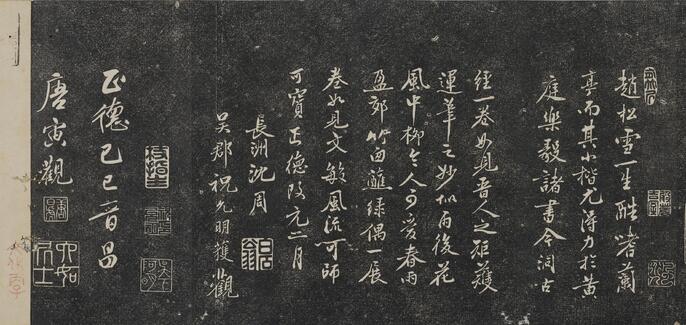 趙松雪一生酷嗜蘭
亭而其小楷尤得力於黃
庭樂毅諸書今洞古
經一卷如見晉人之矩矱
運筆之妙如雨後花
風中柳令人可愛春雨
盈郊竹綠偶一展
卷如見文敏風流可師
可寶正德改元二月
長洲沈周
吳郡祝允明獲觀
正德己巳音昌
唐寅觀
六如居士